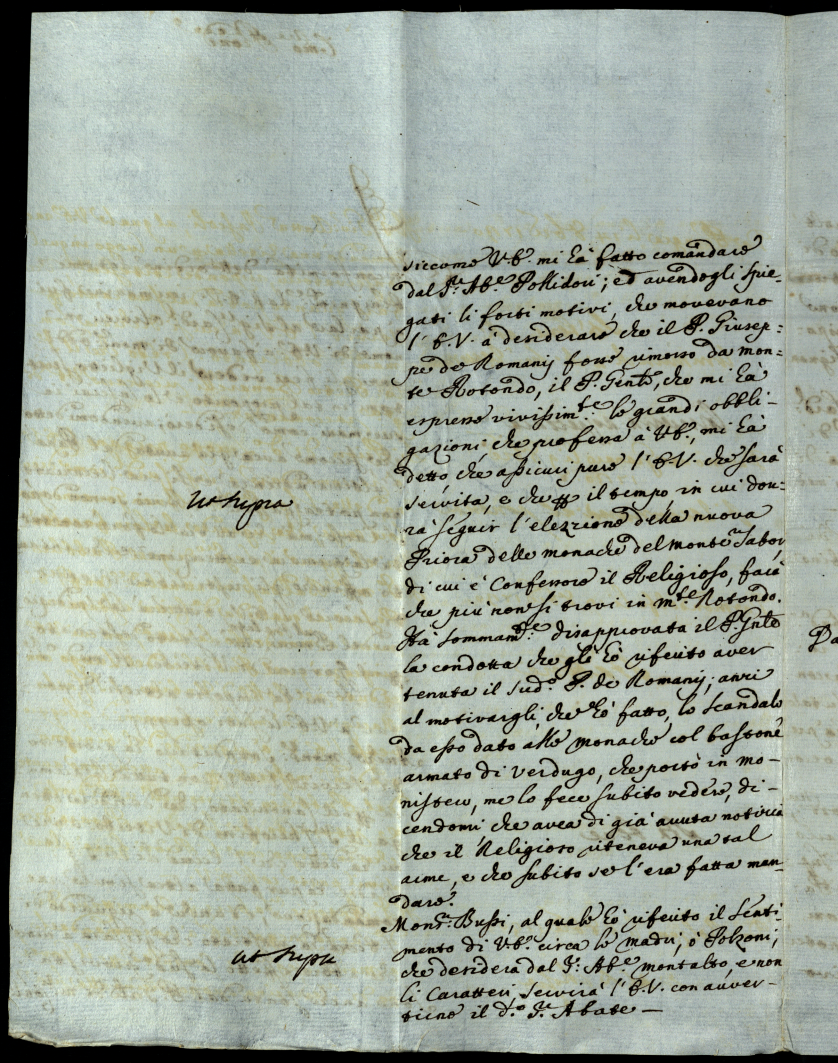 siccome V.E. mi hà fatto comandare
dal Sr. Abe. Pollidori; ed avendogli spie-
gati li forti motivi, che movevano
l'E.V. à desiderare che il P. Giusep-
pe de Romanij fosse rimosso da Mon-
te Rotondo, il P. Gente, che mi hà
espresso vivissimte. le grandi obbli-
gazioni, che professa à V.E., mi hà
detto che assicuri pure l'E.V. che sarà
servita, e che il tempo in cui dov-
rà seguir l'elezzione della nuova
Priora delle monache del Monte Tabor,
di cui è Confessore il Religioso, farà
che più non si trovi in Mte. Rotondo.
Hà sommamte. disapprovata il P. Gnte
la condotta che gli hò riferito aver
tenuta il sudo. P. de Romanij; anzi
al motivargli, che hò fatto, lo scandalo
da esso dato alle monache col bastone
armato di verdugo, che portò in mo-
nistero, me lo fece subito vedere, di-
cendomi, che avea di già avuta notizia
che il Religioso riteneva una tal
arme, e che subito se l'era fatta man-
dare.
Monsr. Bussi, al quale hò riferito il senti-
mento di V.E. circa le madri, ò Polzoni,
che desidera dal Sr. Abe. Montalto, e non
li Caratteri servirà l'E.V. con avver-
tirne il do. Sr. Abate —
Ut supra
ut supra